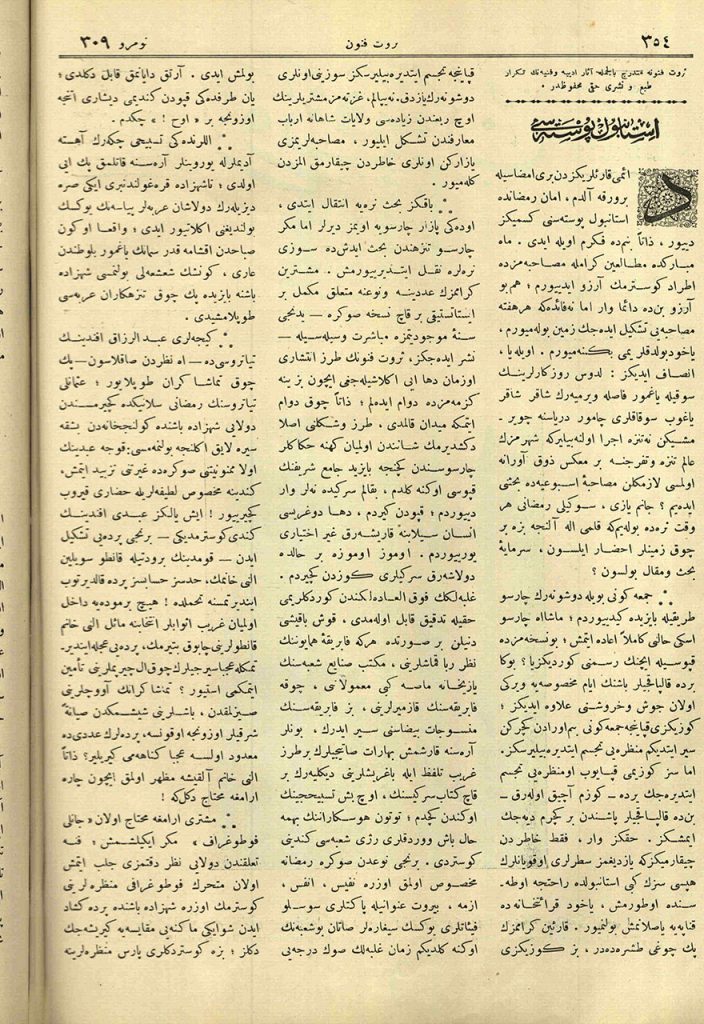 ٣٥٤
ثروت فنون
نومرو ٣٠٩
ثروت فنونه مندرج بالجمله آثار ادبیه وفنیه‌نك تكرار
طبع و نشری حق محفوظدر .
استانبول پوسته‌سی
دائمی قارئلریكزدن بری امضاسیله
بر ورقه آلدم ، امان رمضانده
استانبول پوسته‌سنی كسمیكز
دییور ، ذاتاً بنم‌ده فكرم اویله ایدی . ماه
مباركده مطالعین كرامله مصاحبه‌مزده
اطراد كوسترمك آرزو ایدییورم ؛ هم بو
آرزو بن‌ده دائما وار اما نه‌فائده‌كه هرهفته
مصاحبه‌یی تشكیل ایده‌جك زمین بوله‌میورم ،
یاخود بولدقلریمی بكنه‌میورم . اویله‌یا ،
انصاف ایدیكز : لدوس روزكارلرینك
سوقیله یاغمور فاصله ویرمیه‌رك شاقر شاقر
یاغوب سوقاقلری چامور دریاسنه چویر-
مشیكن نه‌تنزه اجرا اولنه‌بیلیركه شهرمزك
عالم تنزه وتفرجنه بر معكس ذوق آورانه
اولمسی لازمكلن مصاحبهٔ اسبوعیه‌ده بحثنی
ایده‌یم ؟ جانم یازی ، سوكیلی رمضانی هر
وقت نره‌ده بوله‌یم‌كه قلمی اله آلنجه بزه بر
چوق زمینلر احضار ایلسون ، سرمایهٔ
بحث ومقال بولسون ؟
⁂ جمعه كونی بویله دوشونه‌رك چارسو
طریقیله بایزیده كیدییوردم ؛ ماشاالله چارسو
اسكی حالنی كاملاً اعاده ایتمش ؛ بو نسخه‌مزده
قپوسیله ایچنك رسمنی كوردیكزیا ؟ بوكا
برده قالپاقجیلر باشنك ایام مخصوصه‌یه ویركی
اولان جوش وخروشنی علاوه ایدیكز ؛
كوزیكزی قپاینجه جمعه كونی بم اورادن كچركن
سیر ایتدیكم منظره‌یی تجسم ایتدیره‌بیلیرسكز .
اما سز كوزیمی قپایوب اومنظره‌یی تجسم
ایتدیره‌جك یرده — كوزم آچیق اوله‌رق —
بن‌ده قالپاقجیلر باشندن بر كچرم دیه‌جك
ایمشكز . حقكز وار ، فقط خاطردن
چیقارمیكزكه یازدیغمز سطرلری اوقویانلرك
هپسی سزك كبی استانبولده راحتجه اوطه-
سنده اوطورمش ، یاخود قرائتخانه‌ده
قناپه‌یه یاصلانمش بولنمیور . قارئین كرامزك
پك چوغی طشره‌ده‌در ، بز كوزیكزی
قپاینجه تجسم ایتدیره‌بیلیرسكز سوزینی اونلری
دوشونه‌رك یازدق . نه‌یپالم ، غزته‌مز مشتریلرینك
اوچ ربعندن زیاده‌سی ولایات شاهانه ارباب
معارفندن تشكل ایلیور ، مصاحبه‌لریمزی
یازاركن اونلری خاطردن چیقارمق المزدن
كله‌میور .
⁂ باقكز بحث نره‌یه انتقال ایتدی ،
اوده‌كی پازار چارسویه اویمز دیرلر اما مكر
چارسو تنزهندن بحث ایدش‌ده سوزی
نره‌لره نقل ایتدیریورمش . مشترین
كرامزك عددینه و نوعنه متعلق مكمل بر
استاتستیقی بر قاچ نسخه صوكره — یدنجی
سنهٔ موجودیتمزه مباشرت وسیله‌سیله —
نشر ایده‌جكز ، ثروت فنونك طرز انتشاری
اوزمان دها ایی اكلاشیله‌جغی ایچون بز ینه
كزمه‌مزده دوام ایده‌لم ؛ ذاتاً چوق دوام
ایتمكه میدان قالمادی ، طرز وشكلنی اصلا
دكشدیرمك شانندن اولمیان كهنه حكاكلر
چارسوسندن كچنجه بایزید جامع شریفنك
قپوسی اوكنه كلدم ، بقالم سركیده نه‌لر وار
دییوردم ؛ قپودن كیردم ، دها دوغریسی
انسان سیلابنه قاریشه‌رق غیر اختیاری
یوریبوردم . اوموز اوموزه بر حالده
دولاشه‌رق سركیلری كوزدن كچیردم .
غلبه‌لكك فوق العاده‌لكندن كوردكلریمی
حقیله تدقیق قابل اوله‌مدی ، قوش باقیشی
دنیلن بر صورتده هركه فابریقهٔ همایوننك
نظر ربا قماشلرینی ، مكتب صنایع شعبه‌سنك
یازیخانه ماصه كبی معمولاتی ، چوقه
فابریقه‌سنك قازمیرلرینی ، بز فابریقه‌سنك
منسوجات بیضاسنی سیر ایدرك ، بونلر
آره‌سنه قارشمش بهارات صاتیجیلرك بر طرز
غریب تلفظ ایله باغریشلرینی دیكلیه‌رك بر
قاچ كتاب سركیسنك ، اوچ بش تسبیحجینك
اوكندن كچدم ؛ توتون هوسكارانك بهمه
حال باش ووردقلری رژی شعبه‌سی كندینی
كوستردی . برنجی نوعدن صوكره رمضانه
مخصوص اولمق اوزره نفیس ، انفس ،
ازمه ، بیروت عنوانیله پاكتلری سوسلو
فیئاتلری یوكسك سیغاره‌لر صاتان بوشعبه‌نك
اوكنه كلدیكم زمان غلبه‌لك صوك درجه‌یی
بولمش ایدی . آرتق دایانمق قابل دكلدی ؛
یان طرفده‌كی قپودن كندیمی دیشاری آتنجه
اوزونجه بر « اوح ! » چكدم .
⁂ اللرنده‌كی تسبیحی چكه‌رك آهسته
آدیملرله یورویینلر آره‌سنه قاتلمق پك ایی
اولدی ؛ تا شهزاده قره‌غولندنبری ایكی صره
دیزیله‌رك دولاشان عربه‌لر پیاسه‌نك یوكسك
بولندیغنی اكلاتیور ایدی ؛ واقعا او كون
صباحدن اقشامه قدر سمانك یاغمور بلوطندن
عاری ، كونشك شعشعه‌لی بولنمسی شهزاده
باشنه بایزیده پك چوق تنزهكاران عربه‌سی
طوپلامشیدی .
⁂ كیجه‌لری عبد الرزاق افندینك
تیاتروسی‌ده — اه نظردن صاقلاسون — پك
چوق تماشاكران طوپلایور ؛ عثمانلی
تیاتروسنك رمضانی سلانیكده كچیرمسندن
دولایی شهزاده باشنده كولنجخانه‌دن بشقه
سیره لایق اكلنجه بولنمه‌مسی : قوجه عبدینك
اولا ممنونیتنی صوكره‌ده غیرتنی تزیید ایتمش .
كندینه مخصوص لطیفه‌لریله حضاری قیروب
كچیریور ! ایش یالكز عبدی افندینك
كندی كوسترمدیكی — برنجی پرده‌یی تشكیل
ایدن — قومدینك برودتیله قانطو سویلین
المی خانمك، حدسز حسابسز پرده قالدیرتوب
ایندیرتمسنه تحملده ! هیچ برموده‌یه داخل
اولمیان غریب اثوابلر انتخابنه مائل المی خانم
قانطولرینی چابوق بتیرمك ، پرده‌یی عجله ایندیر-
تمكله عجبا سیرجیلرك چوق ال چیرپملرینی تأمین
ایتمكمی استیور ؟ تماشاكرانك آووجلرینی
صیزلمقدن ، باشلرینی شیشمكدن صیانة
شرقیلر اوزونجه اوقونسه ، پرده‌لرك عددی‌ده
معدود اولسه عجبا كناهه‌می كیریلیر ؟ ذاتاً
المی خانم آلقیشه مظهر اولمق ایچون چاره
آرامغه محتاج دكل‌كه !
⁂ مشتری آرامغه محتاج اولان « جانلی
فوطوغراف » مكر ایكیلشمش ؛ فنه
تعلقندن دولایی نظر دقتمزی جلب ایتمش
اولان متحرك فوطوغرافی منظره‌لرینی
كوسترمك اوزره شهزاده باشنده پرده كشاد
ایدن شو ایكی ماكنه‌یی مقایسه‌یه كیریشه‌جك
دكلز ؛ بزه كوستردكلری پارس منظره‌لرینه